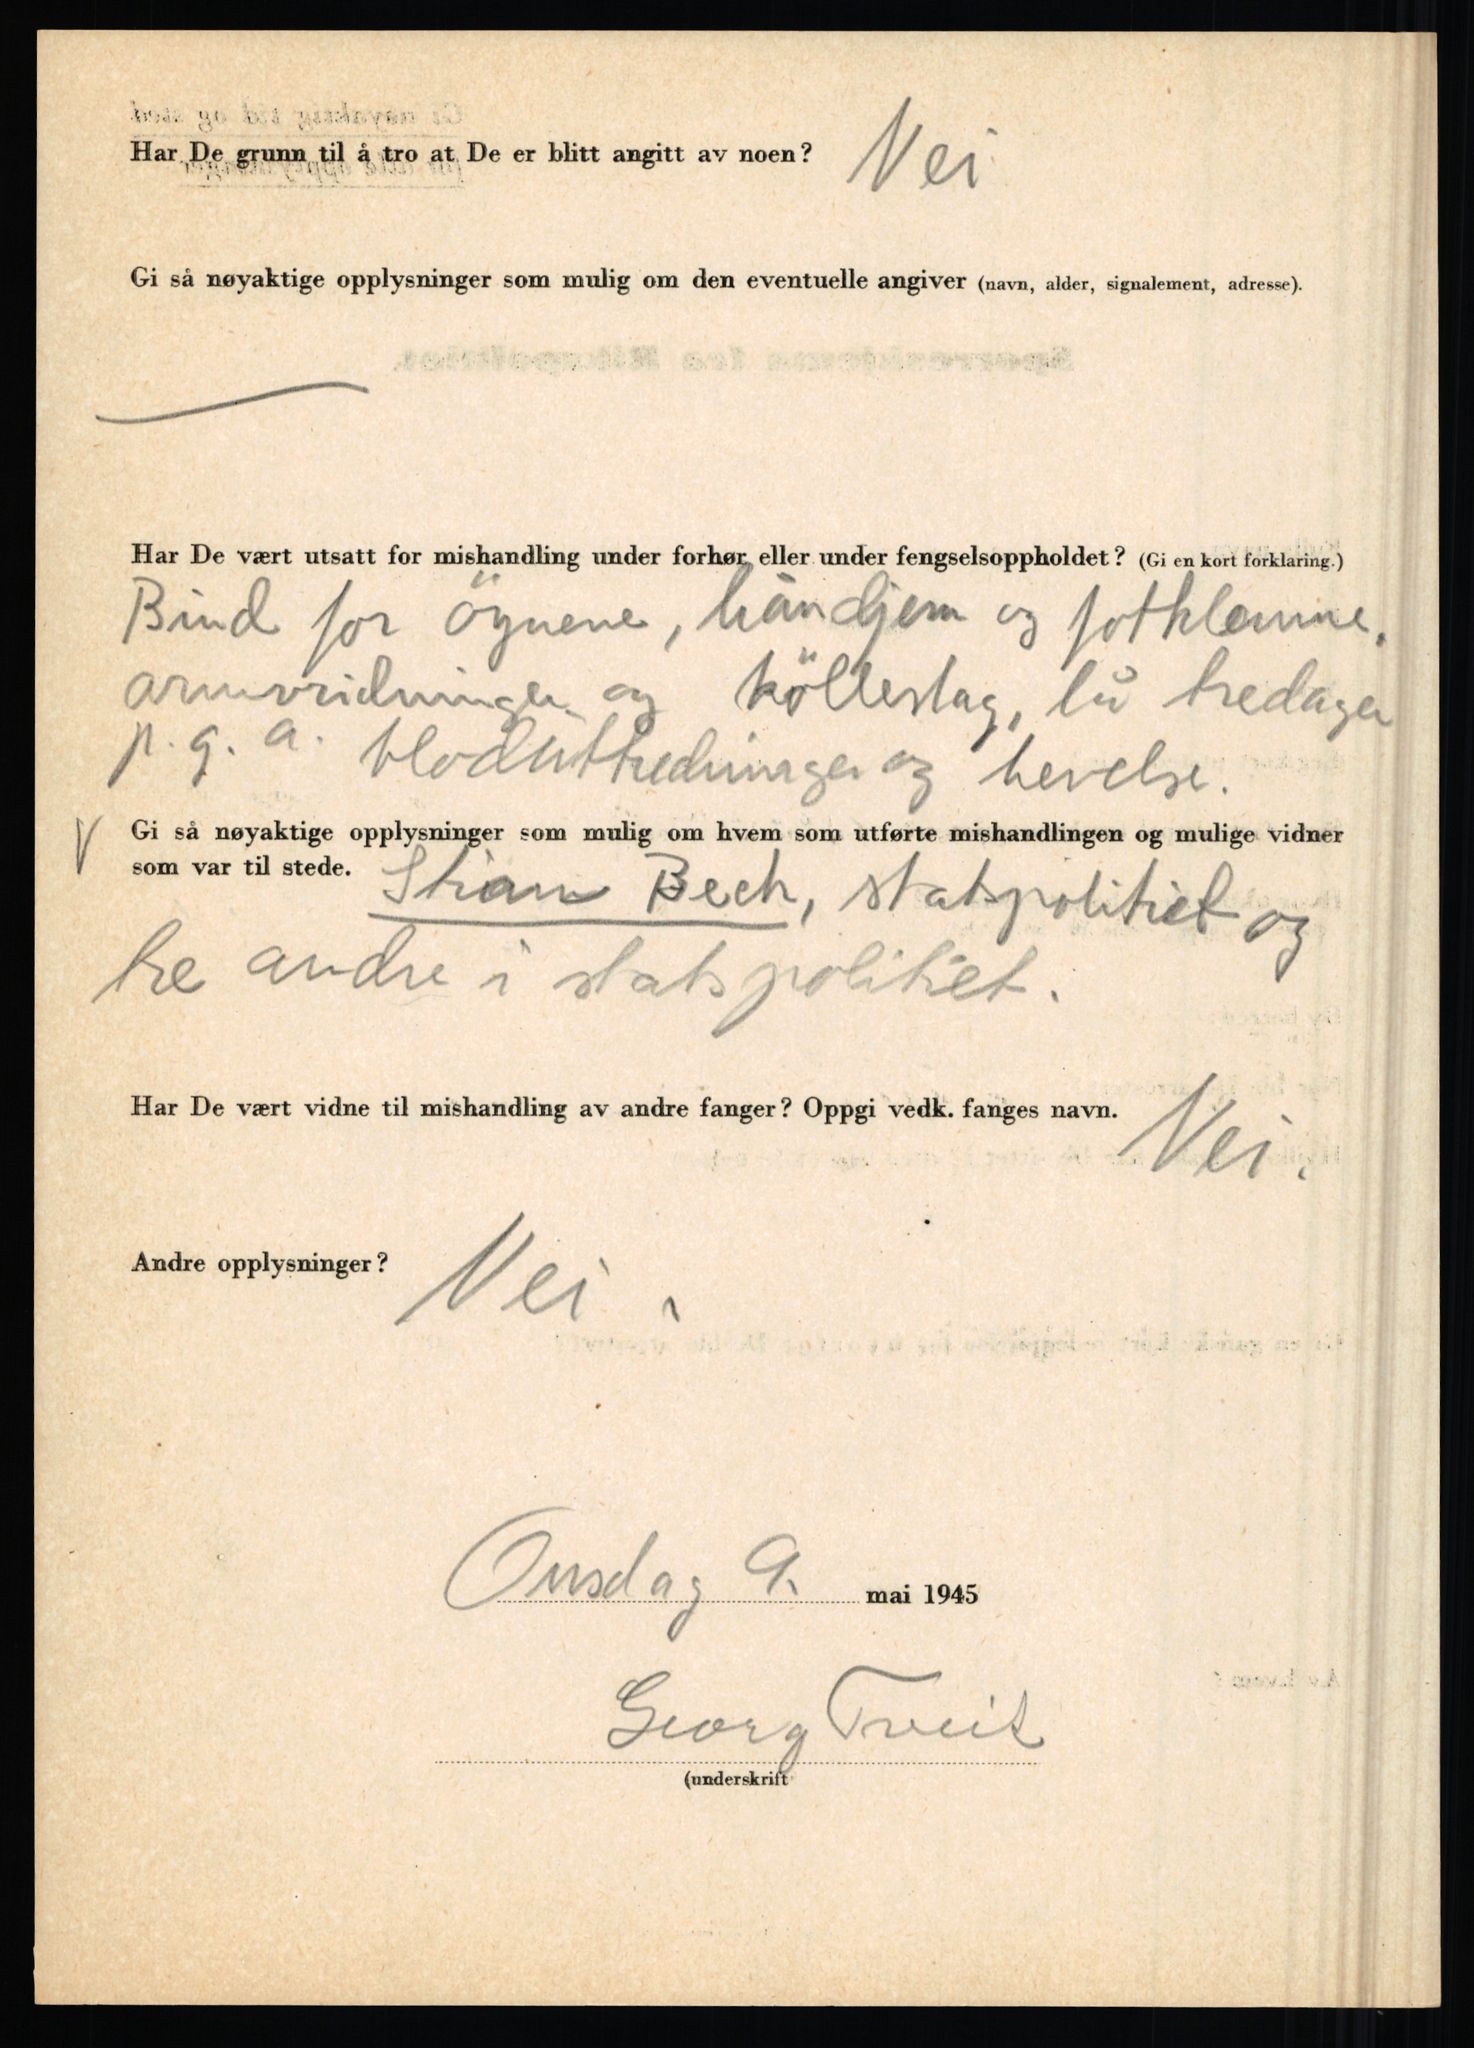 Har De grunn til å tro at De er blitt angitt av noen? Nei
Gi så nøyaktige opplysninger som mulig om den eventuelle angiver (navn, alder, signalement, adresse).
Har De vært utsatt for mishandling under forhør eller under fengselsoppholdet? (Gi en kort forklaring.)
Bind for öynene, håndjern og fotklemme,
armvridninger og kölleslag, lå tredager
p. g. a. bloduttredninger og hevelse.
V Gi så nøyaktige opplysninger som mulig om hvem som utførte mishandlingen og mulige vidner
som var til stede. Stian Bech, statspolitiet og
tre andre i statspolitiet.
Har De vært vidne til mishandling av andre fanger? Oppgi vedk. fanges navn. Nei.
Andre opplysninger? Nei.
Onsdag 9. mai 1945
Georg Tveit
(underskrift